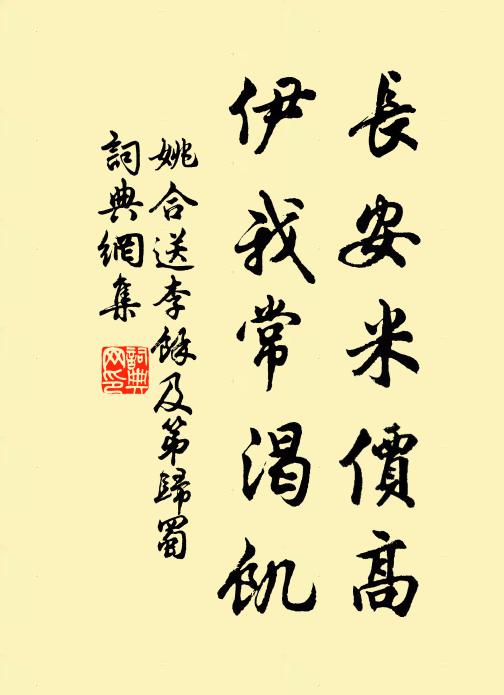 長安米價高
伊我常渴飢
姚合送李餘及第歸蜀
詞典網集
詞典網印